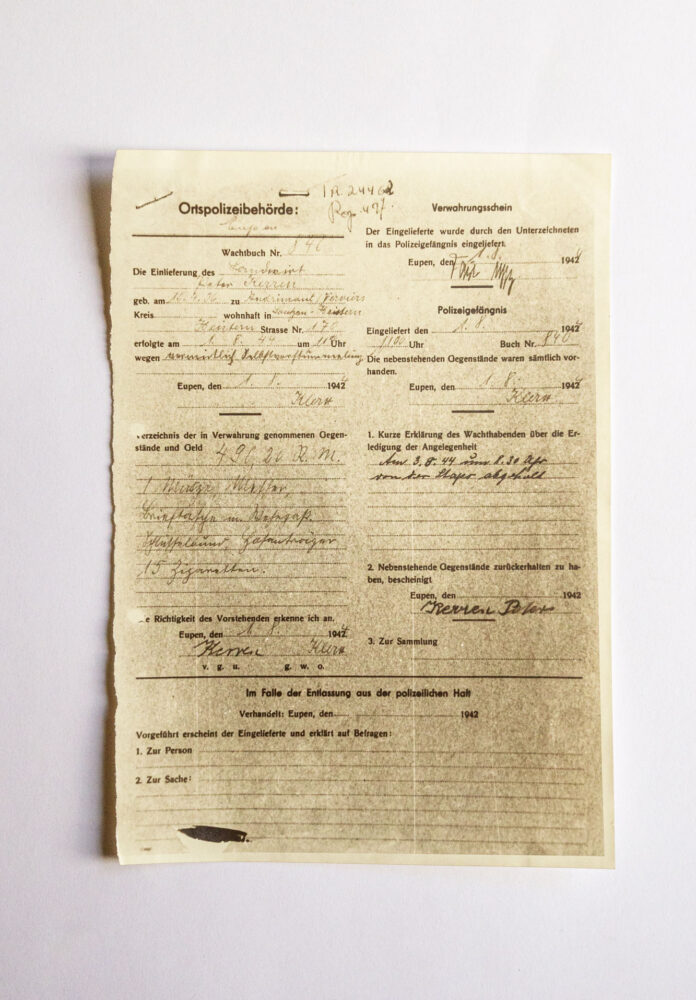 TR 24462
Reg. 497.
Ortspolizeibehörde:
Eupen
Wachtbuch Nr. 840
Die Einlieferung des Landwirt
Peter Kerren
geb. am zu
Kreis wohnhaft in
Strasse Nr. 176
erfolgte am 1. 8. 44 um Uhr
wegen vermutlich Selbstverstümmelung
Eupen, den 1. 8. 1944
Verzeichnis der in Verwahrung genommenen Gegen-
stände und Geld R. M.
1 Messer,
Brieftasche m.
Schlüsselbund, Hosenträger
15 Zigaretten.
Richtigkeit des Vorstehenden erkenne ich an.
Eupen, den 1. 8. 1944
Kerren
v. g. u. g. w. o.
Verwahrungsschein
Der Eingelieferte wurde durch den Unterzeichneten
in das Polizeigefängnis eingeliefert.
Eupen, den 1. 8. 1944
Polizeigefängnis
Eingeliefert den 1. 8. 1944
1100 Uhr Buch Nr. 840
Die nebenstehenden Gegenstände waren sämtlich vor-
handen.
Eupen, den 1. 8. 1944
1. Kurze Erklärung des Wachthabenden über die Er-
ledigung der Angelegenheit
Am 3. 8. 44 um 8.30 Uhr
von der Stapo abgeholt
2. Nebenstehende Gegenstände zurückerhalten zu ha-
ben, bescheinigt
Eupen, den 1942
Kerren Peter
3. Zur Sammlung
Im Falle der Entlassung aus der polizeilichen Haft
Verhandelt: Eupen, den 1942
Vorgeführt erscheint der Eingelieferte und erklärt auf Befragen:
1. Zur Person
2. Zur Sache: